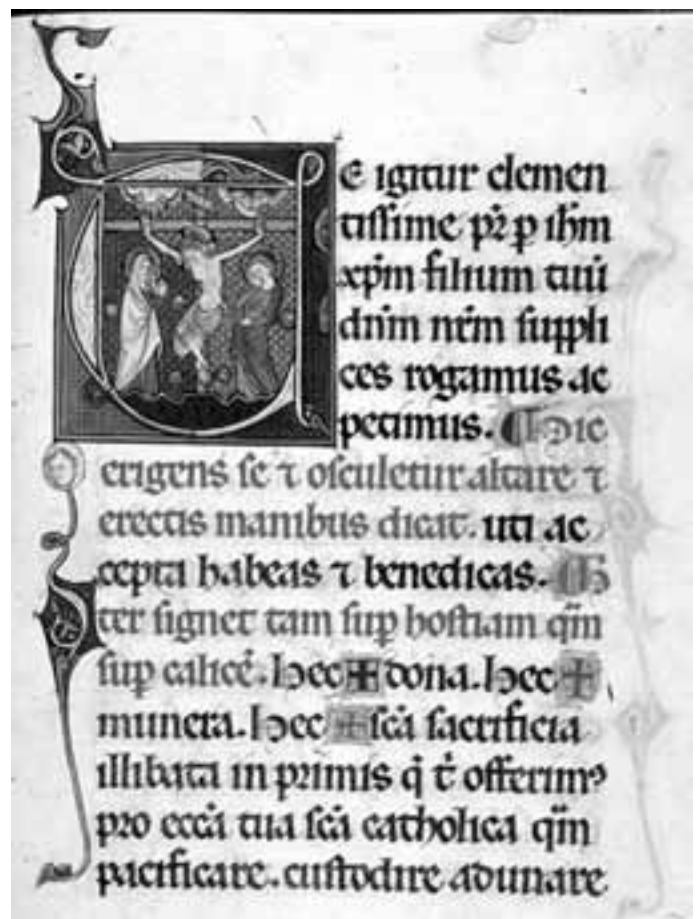 Te igitur clemen
tissime pr̄ p ihm
xp̄m filium tuū
dnm nrm suppli
ces rogamus ac
petimus. ¶ Hic
erigens se ⁊ osculetur altare ⁊
erectis manibus dicat. uti ac
cepta habeas ⁊ benedicas.
ter signet tam sup̱ hostiam qm̄
sup̱ calicē. hec ✚ dona. hec ✚
munera. hec ✚ scā sacrificia
illibata in primis q̄ t̄ offerimꝰ
pro eccā tua scā catholica qm̄
pacificare. custodire adunare